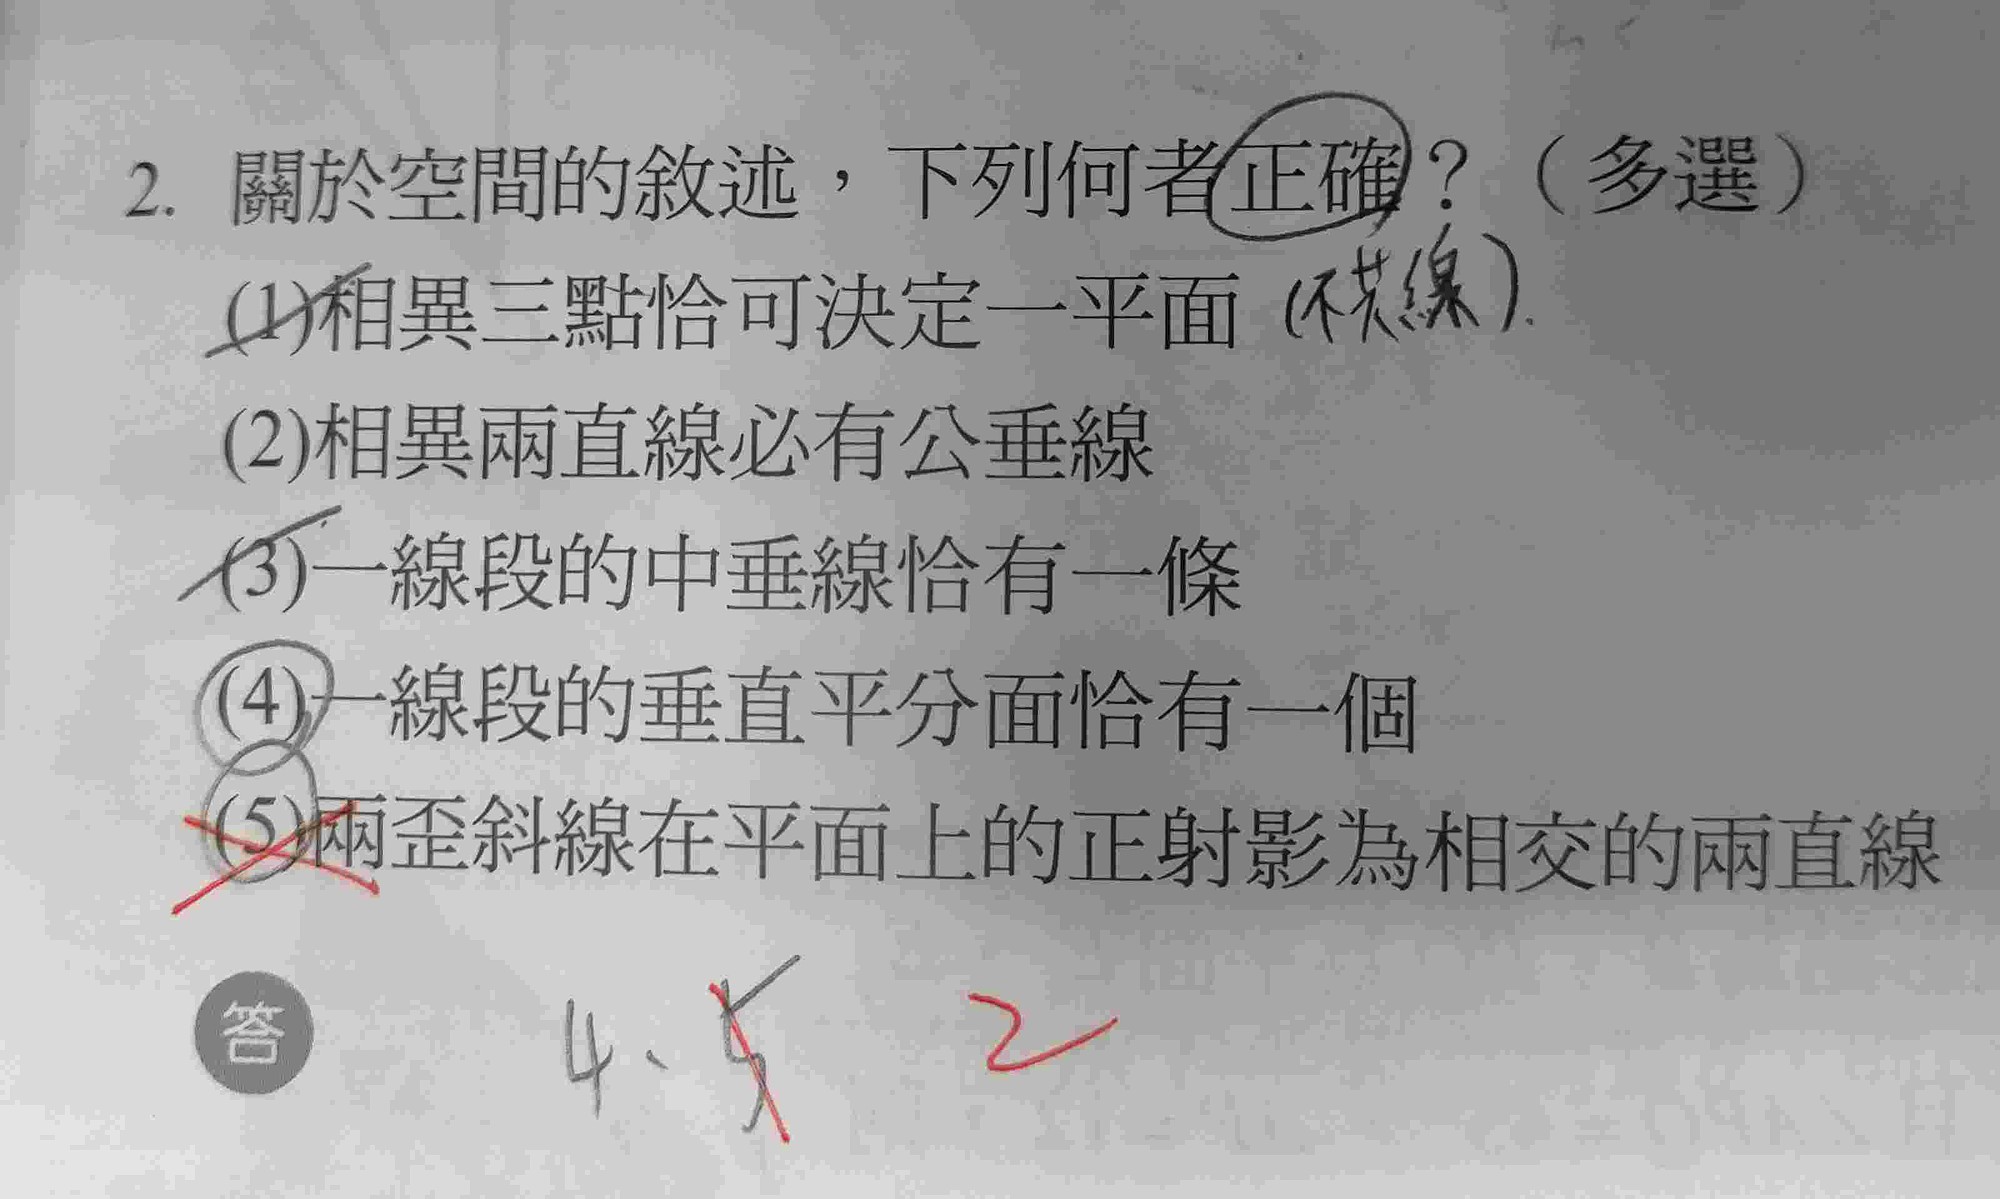 2. 關於空間的敘述，下列何者正確？（多選）
(1)相異三點恰可決定一平面 (不共線).
(2)相異兩直線必有公垂線
(3)一線段的中垂線恰有一條
(4)一線段的垂直平分面恰有一個
(5)兩歪斜線在平面上的正射影為相交的兩直線
答 4、5 2